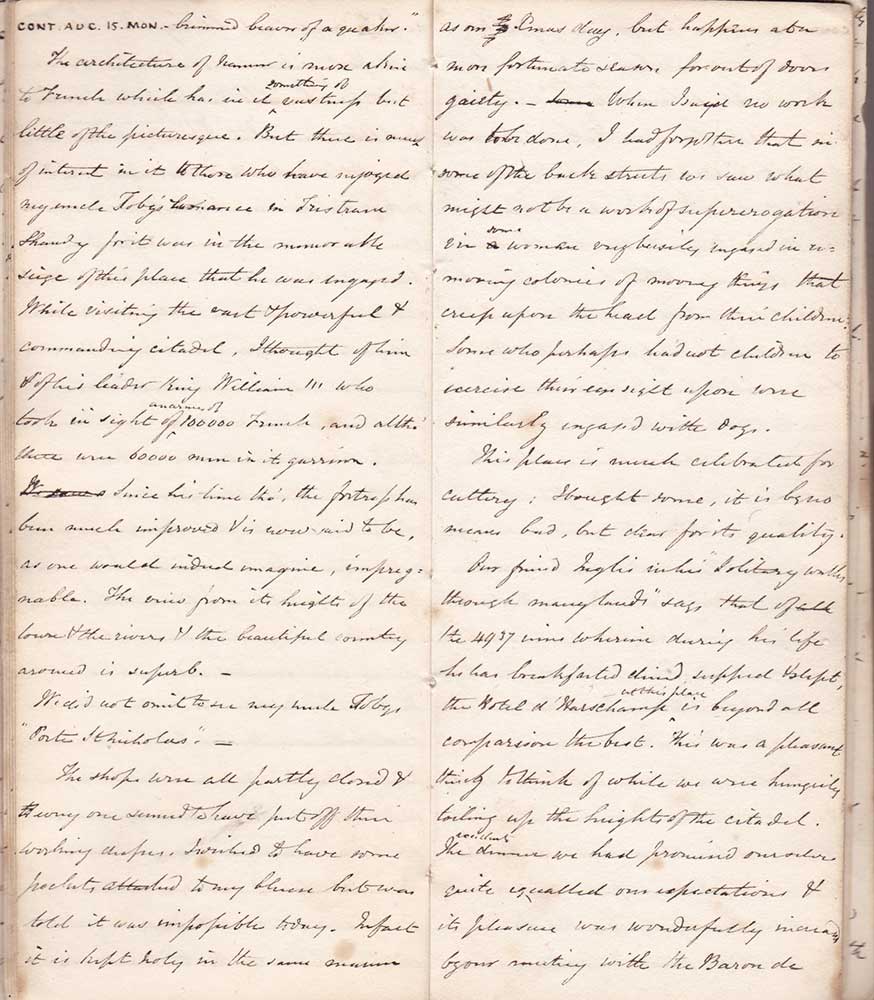 CONT. AUG. 15. MON. - brimmed beaver of a quaker."
The architecture of Namur is more akin
to French which has in it something of vastness but
little of the picturesque. But there is much
of interest in it to those who have enjoyed
my uncle Toby's romance in Tristram
Shandy for it was in the memorable
siege of this place that he was engaged.
While visiting the vast & powerful &
commanding citadel, I thought of him
& of his leader King William III who
took in sight of an army of 100000 French, and altho'
there were 60000 men in it garrison.
We saw Since his time tho', the fortress has
been much improved & is now said to be,
as one would indeed imagine, impreg-
nable. The view from its heights of the
town & the rivers & the beautiful country
around is superb. -
We did not omit to see my uncle Tobys
"Porte St Nicholas". -
The shops were all partly closed &
every one seemed to have put off their
working dresses. I wished to have some
pockets attached to my blouse but was
told it was impossible today. In fact
it is kept holy in the same manner
as our Xmas day, but happens at a
more fortunate season for out of doors
gaiety. - When I said no work
was to be done, I had forgotten that in
some of the back streets we saw what
might not be a work of supererogation
in some woman very busily engaged in re-
moving colonies of moving things that
creep upon the head from their children:
Some who perhaps had not children to
exercise their eyesight upon were
similarly engaged with dogs.
This place is much celebrated for
cutlery; I bought some, it is by no
means bad, but dear for its quality.
Our friend Inglis in his "Solitary walks
through many lands" says that of all
the 4937 inns wherein during his life
he has breakfasted dined, supped & slept,
the Hotel d'Harschamp at this place is beyond all
comparison the best. This was a pleasant
thing to think of while we were hungrily
toiling up the heights of the citadel.
The dinner we had promised ourselves
quite equalled our expectations &
its pleasure was wonderfully increased
by our meeting with the Baron de